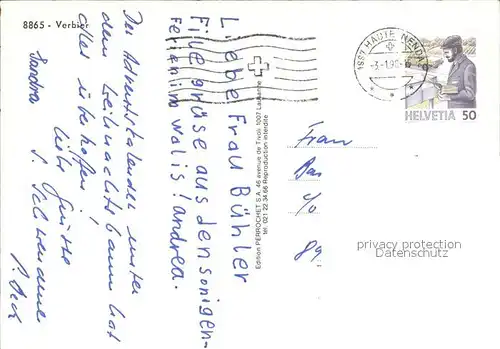 8865 - Verbier
Liebe Frau Bühler
File grüse aus den sonigen-
Ferien im walis! andrea.
Der Adventskalender unter
dem Weihnachtsbaum hat
alles übertroffen!
Liebi Grüsse
Sandra
Edition PERROCHET S.A. 46 avenue de Tivoli 1007 Lausanne
tel. 021 22 34 66 Reproduction interdite
1997 HAUTE-NENDAZ
HELVETIA 50
Frau
c/o
89
privacy protection
Datenschutz